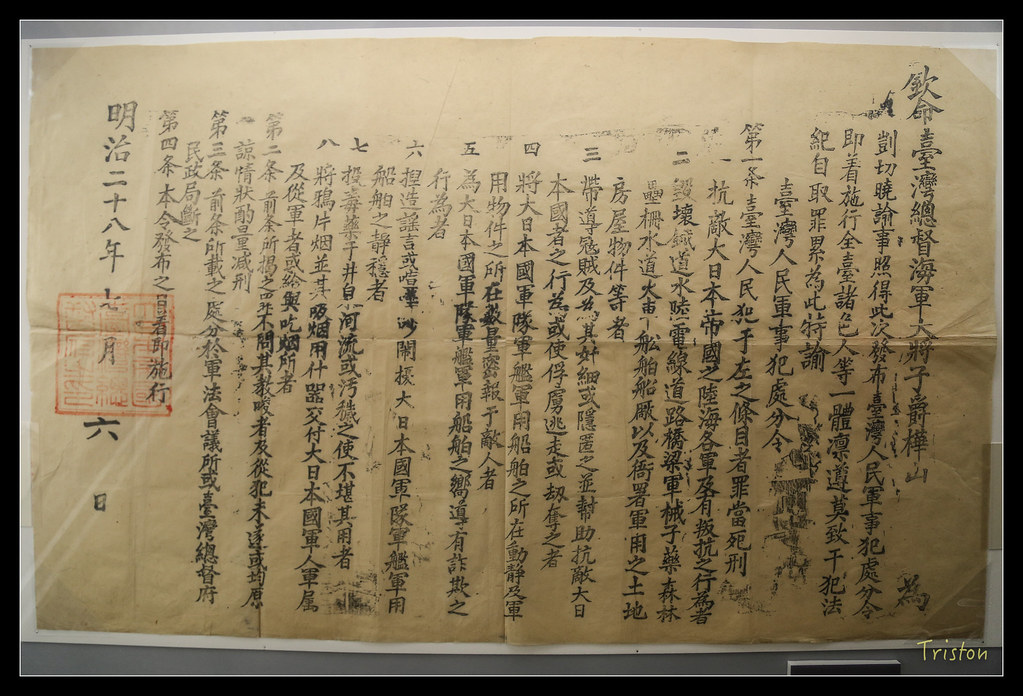 欽命臺灣總督海軍大將子爵樺山 為
剴切曉諭事照得此次發布臺灣人民軍事犯處分令
即着施行全臺諸色人等一體凛遵莫致干犯法
紀自取罪累為此特諭
臺灣人民軍事犯處分令
第一条臺灣人民犯于左之條目者罪當死刑
一 抗敵大日本帝國之陸海各軍及有叛抗之行為者
二 毀壞鐵道水陸電線道路橋梁軍械子藥森林
壘柵水道火車船舶船廠以及衙署軍用之土地
房屋物件等者
三 帶導冦賊及為其奸細或隱匿之並幇助抗敵大日
本國者之行為或使俘虜逃走或刧奪之者
四 將大日本國軍隊軍艦軍用船舶之所在動靜及軍
用物件之所在數量密報于敵人者
五 為大日本國軍隊軍艦軍用船舶之嚮導有詐欺之
行為者
六 揑造謠言或喧嘩吵閙擾大日本國軍隊軍艦軍用
船舶之靜穩者
七 投毒藥于井泉河流或污穢之使不堪其用者
八 將鴉片烟並其吸烟用什器交付大日本國軍人軍属
及從軍者或給與吃烟所者
第二条 前条所揭之罪不問其教唆者及從犯未遂或均原
諒情狀酌量减刑
第三条 前条所載之處分於軍法會議所或臺灣總督府
民政局斷之
第四条本令發布之日着即施行
明治二十八年七月六日
Triston